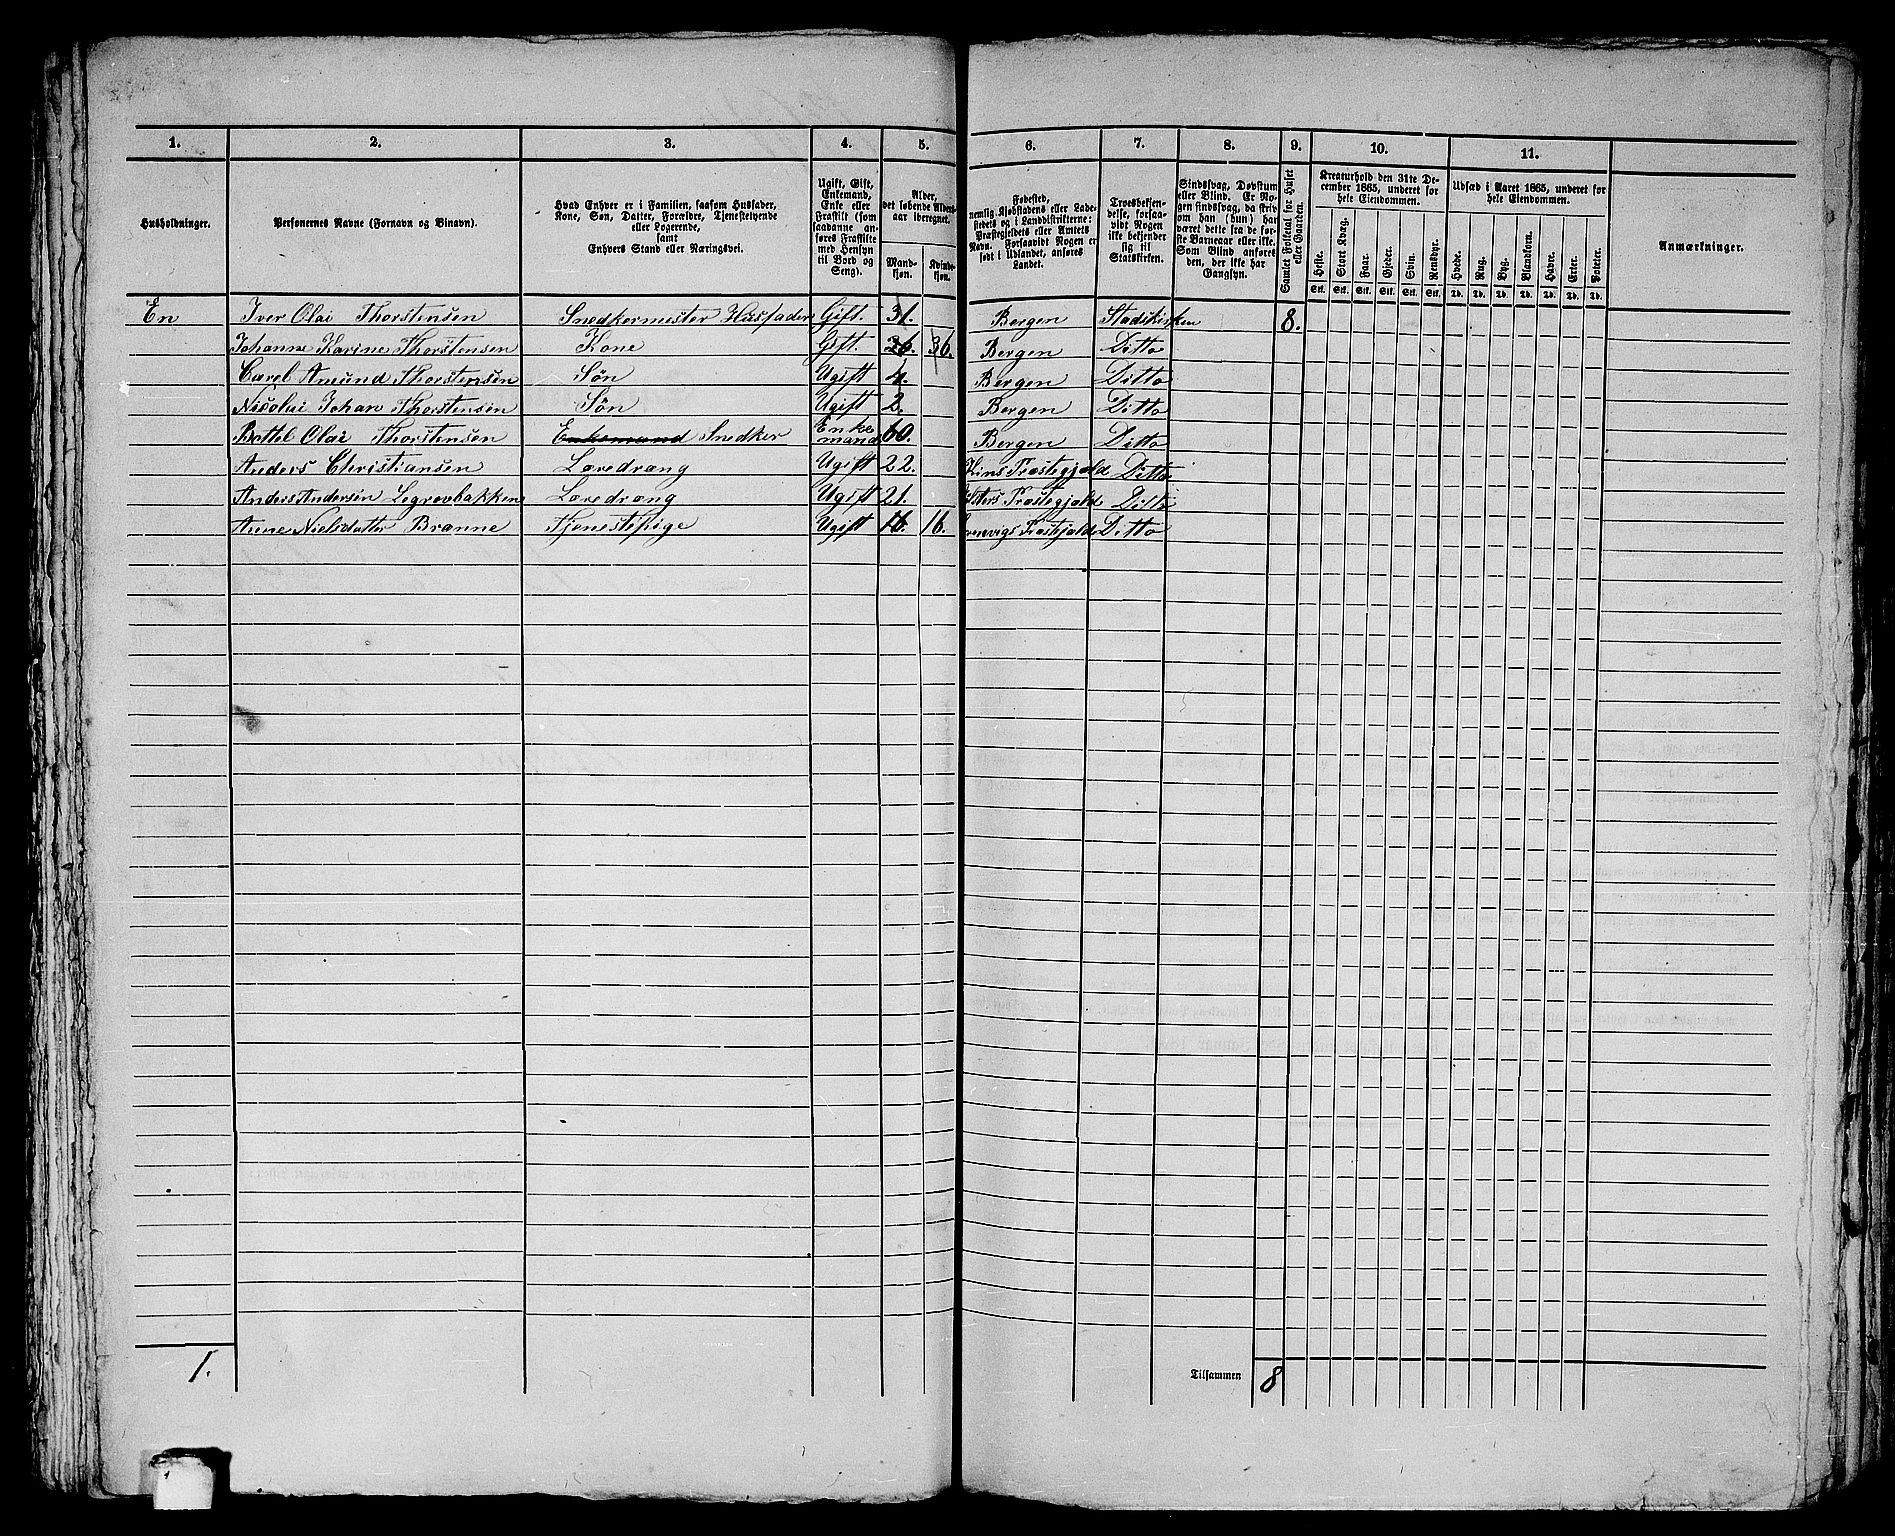 1. 2. 3. 4. 5. 6. 7. 8. 9. 10. 11.
Husholdninger.
Personernes Navne (Fornavn og Binavn).
Hvad Enhver er i Familien, saasom Husfader,
Kone, Søn, Datter, Forældre, Tjenestetyende
eller Logerende,
samt
Enhvers Stand eller Næringsvei.
Ugift, Gift,
Enkemand,
Enke eller
Fraskilt (som
saadanne an-
føres Fraskilte
med Hensyn
til Bord og
Seng).
Alder,
det løbende Alders-
aar iberegnet.
Mand-
kjøn.
Kvinde-
kjøn.
Fødested,
nemlig Kjøbstadens eller Lade-
stedets og i Landdistrikterne:
Præstegjeldets eller Amtets
Navn. Forsaavidt Nogen er
født i Udlandet, anføres
Landet.
Troesbekjen-
delse, forsaa-
vidt Nogen
ikke bekjender
sig til
Statskirken.
Sindssvag, Døvstum
eller Blind. Er No-
gen sindssvag, da skriv
om han (hun) har
været dette fra de før-
ste Barneaar eller ikke.
Som Blind anføres
den, der ikke har
Gangsyn.
Samlet Folketal for Huset
eller Gaarden.
Kreaturhold den 31te De-
cember 1865, underet for
hele Eiendommen.
Heste. Stort Kvæg. Faar. Gjeder. Svin. Rensdyr.
Stk. Stk. Stk. Stk. Stk. Stk.
Udsæd i Aaret 1865, underet for
hele Eiendommen.
Hvede. Rug. Byg. Blandkorn. Havre. Erter. Poteter.
Td. Td. Td. Td. Td. Td. Td.
Anmærkninger.
En Iver Olai Thorstensen Snedkermester Husfader Gift. 31. Bergen Stadskirken 8.
Johanne Karine Thorstensen Kone Gift. 36. 36. Bergen Ditto
Carel Amund Thorstensen Søn Ugift 4. Bergen Ditto
Nicolai Johan Thorstensen Søn Ugift 2. Bergen Ditto
Bottel Olai Thorstensen Enkemand Snedker Enkemand 60. Bergen Ditto
Anders Christiansen Læredræng Ugift 22. Kins Præstegjæld Ditto
Anders Andersen Læredræng Ugift 21. Præstegjæld Ditto
Anne Nielsdatter Brænne Tjenestepige Ugift 16. 16. Ditto
1. Tilsammen 8